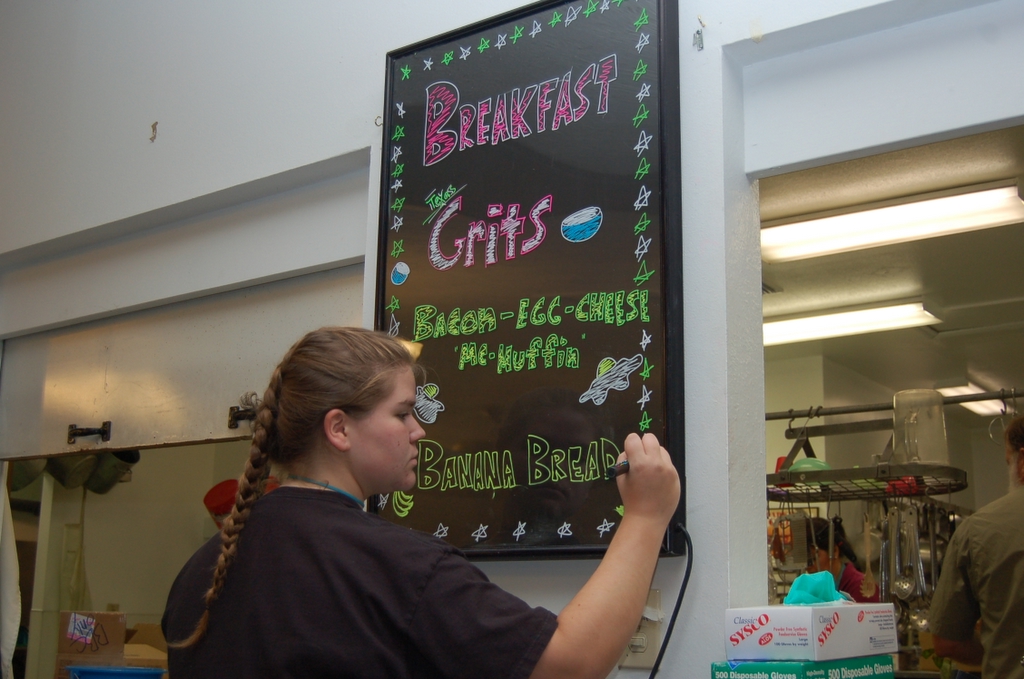 BREAKFAST
Texas
Grits
BACON-EGG-CHEESE
"Mc-Muffin"
BANANA BREAD
Classic
SYSCO
Classic
SYSCO
500 Disposable Gloves
500 Disposable Gloves